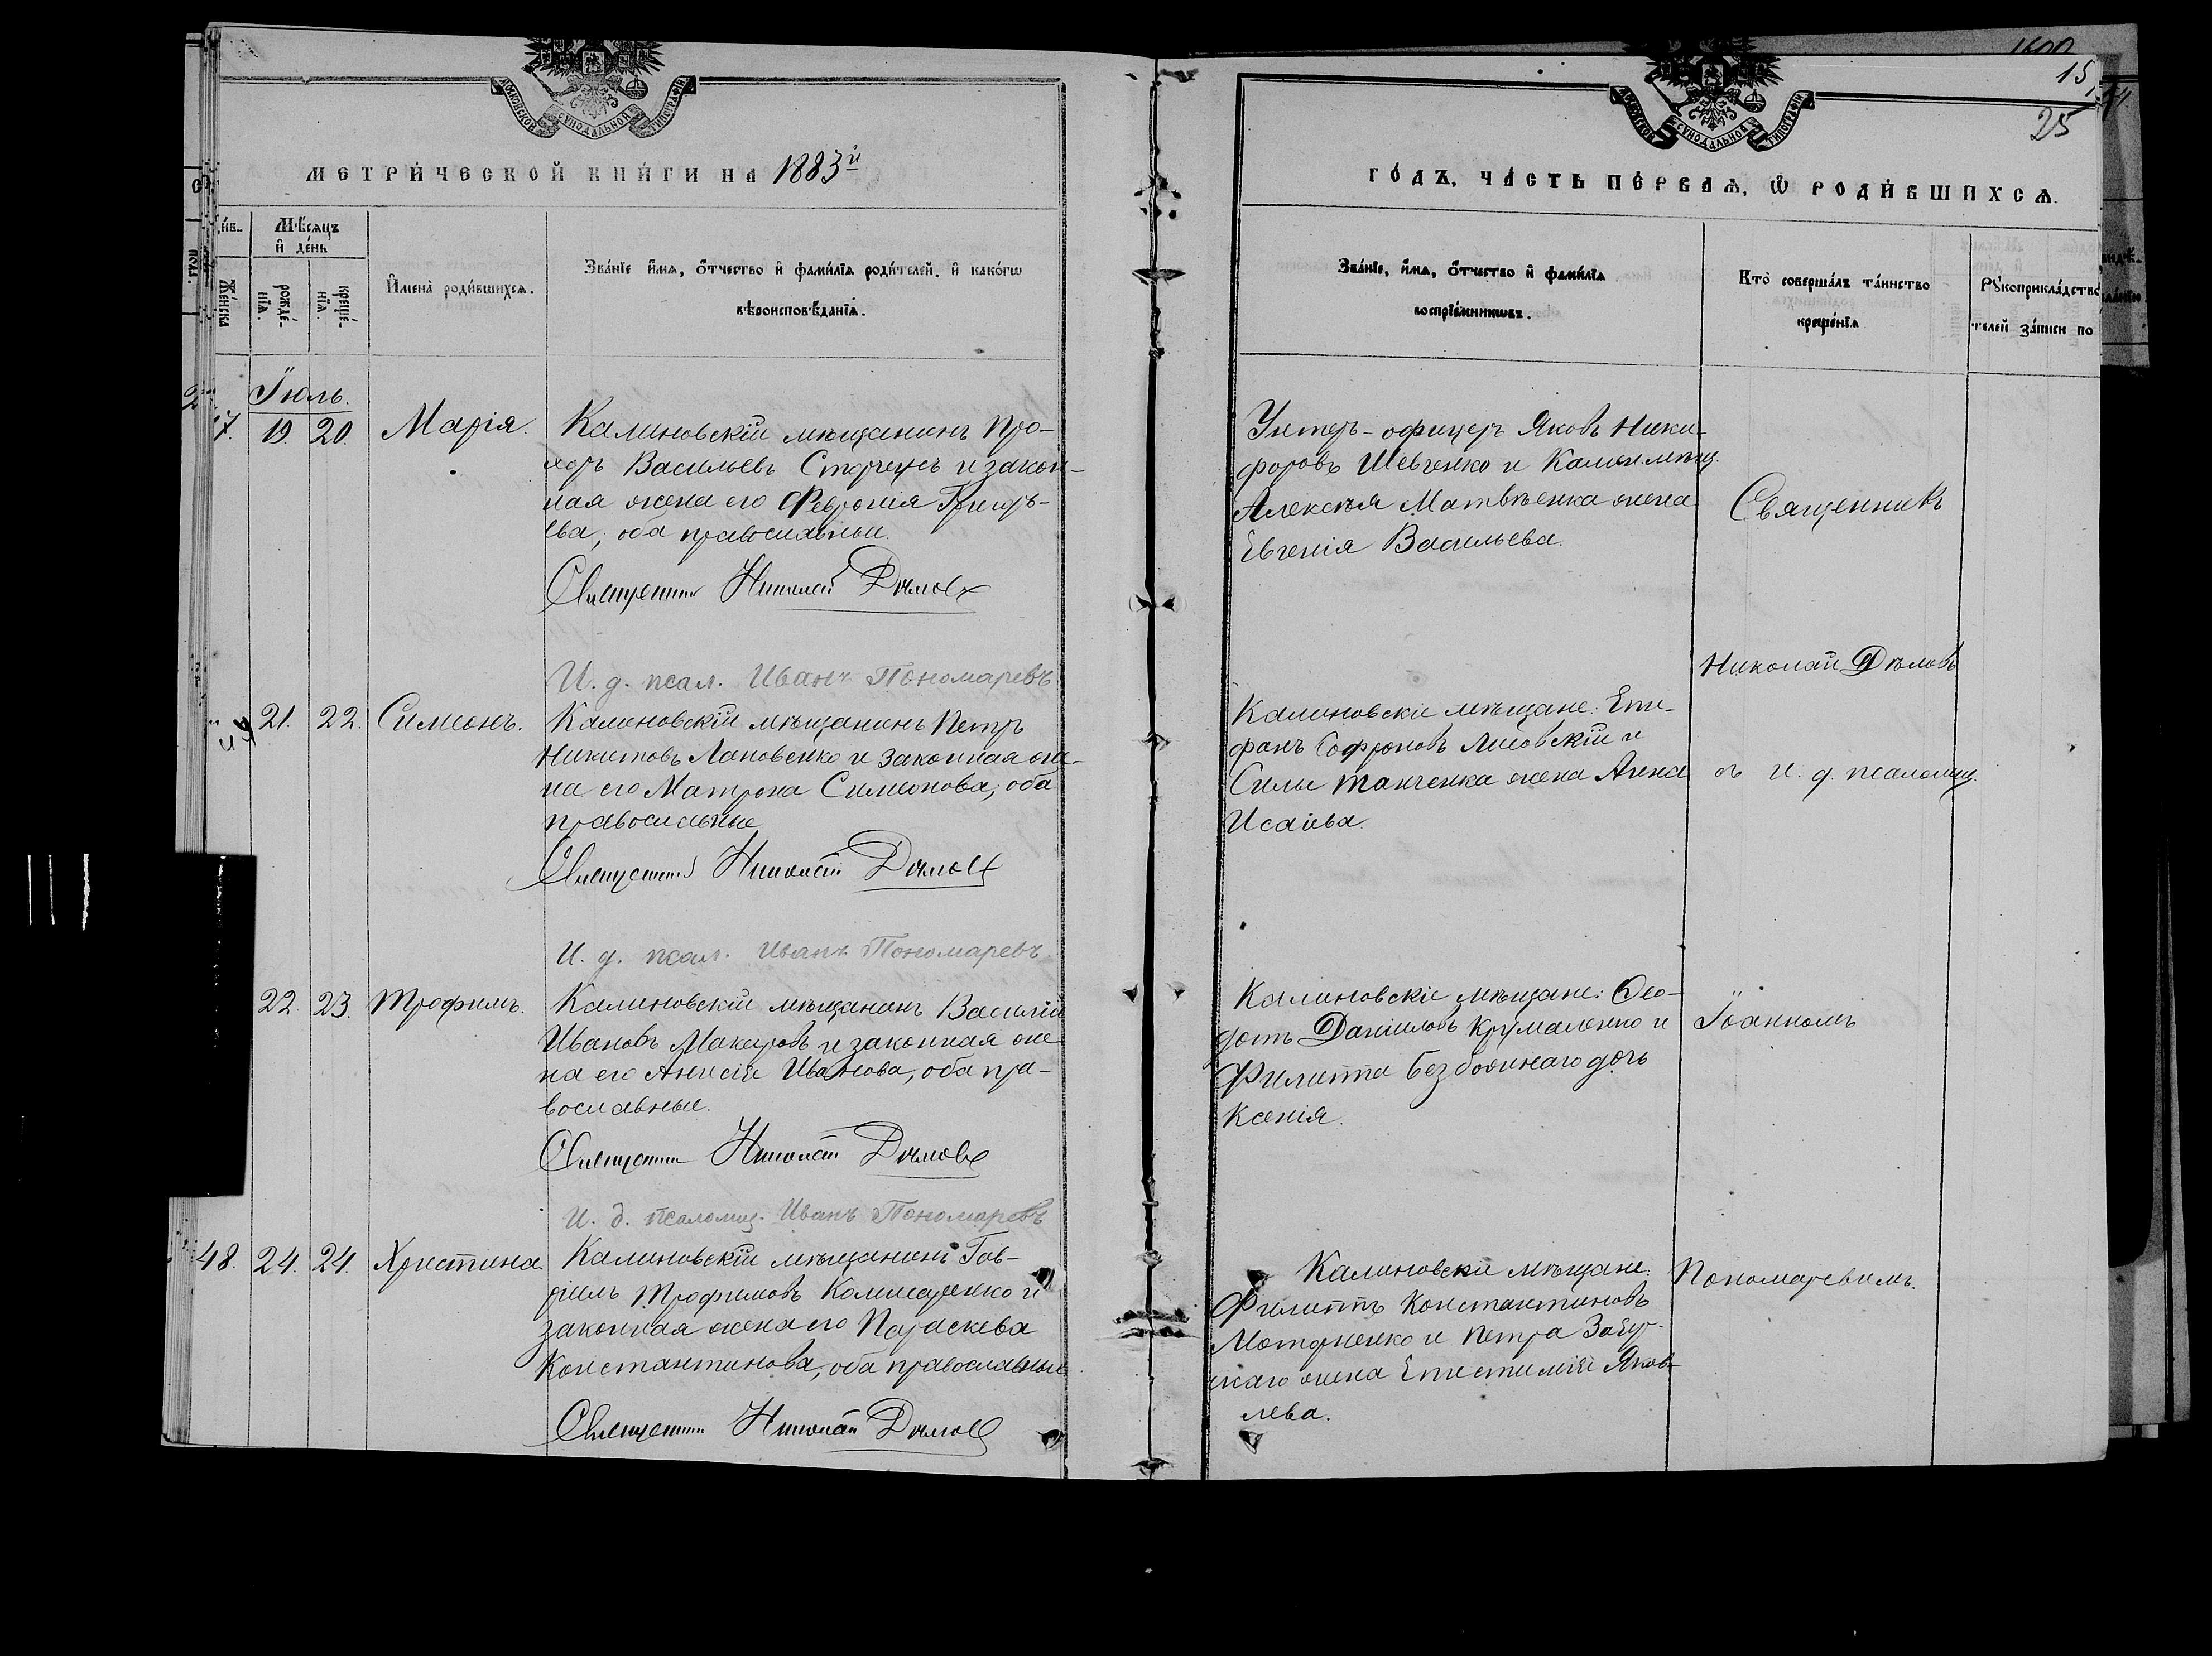 МОСКОВСКОЙ СѴНОДАЛЬНОЙ ТИПОГРАФІИ
МЕТРИ́ЧЕСКОЙ КНИ́ГИ НА 1883й
Мѣ́сяцъ
и҆ де́нь
Же́нска
рожде́-
нїѧ.
креще́-
нїѧ.
И҆мена̀ роди́вшихсѧ.
Зва́нїе и҆́мѧ, ѻ҆́тчество и҆ фами́лїѧ роди́телей, и҆ како́гѡ
вѣроисповѣ́данїѧ.
Іюль.
7. 19. 20. Марія.
Калиновскій мѣщанинъ Про-
хоръ Васильевъ Сторчеусъ и закон-
ная жена его Феврония Григорь-
ева, оба православные.
Священникъ Николай Дѣмовъ
И. д. псал. Иванъ Пономаревъ
21. 22. Симеонъ.
Калиновскій мѣщанинъ Петръ
Никитовъ Лановенко и законная же-
на его Матрона Симеонова, оба
православные
Священникъ Николай Дѣмовъ
И. д. псал. Иванъ Пономаревъ
22. 23. Трофимъ.
Калиновскій мѣщанинъ Василій
Ивановъ Макаровъ и законная же-
на его Анисія Иванова, оба пра-
вославные.
Священникъ Николай Дѣмовъ
И. д. псаломщ. Иванъ Пономаревъ
48. 24. 24. Христина
Калиновскій мѣщанинъ Гав-
ріилъ Трофимовъ Комисаренко и
законная жена его Параскева
Константинова, оба православные
Священникъ Николай Дѣмовъ
1600
15
25
МОСКОВСКОЙ СѴНОДАЛЬНОЙ ТИПОГРАФІИ
ГО́ДЪ, ЧА́СТЬ ПЕ́РВАѦ, Ѡ҆ РОДИ́ВШИХСѦ.
Зва́нїе, и҆́мѧ, ѻ҆́тчество и҆ фами́лїѧ
воспрїе́мникѡвъ.
Кто̀ соверша́лъ та́инство
креще́нїѧ
Рꙋкоприкла́дство
телей за́писи по
Унтеръ-офицеръ Яковъ Ники-
форовъ Шевченко и Калин. мѣщ.
Алексѣя Матвѣенка жена
Евгенія Васильева.
Священникъ
Николай Дѣмовъ
Калиновскіе мѣщане: Епи-
фанъ Софроновъ Лисовскій и
Силы Танченка жена Анна
Исаіева.
съ и. д. псаломщ.
Калиновскіе мѣщане: Ѳео-
дотъ Даніиловъ Крумаленко и
Филиппа Безбожнаго дочь
Ксенія.
Іоанномъ
Калиновскіе мѣщане:
Филиппъ Константиновъ
Моторненко и Петра
жена Епистимія Яков-
лева.
Пономаревымъ.